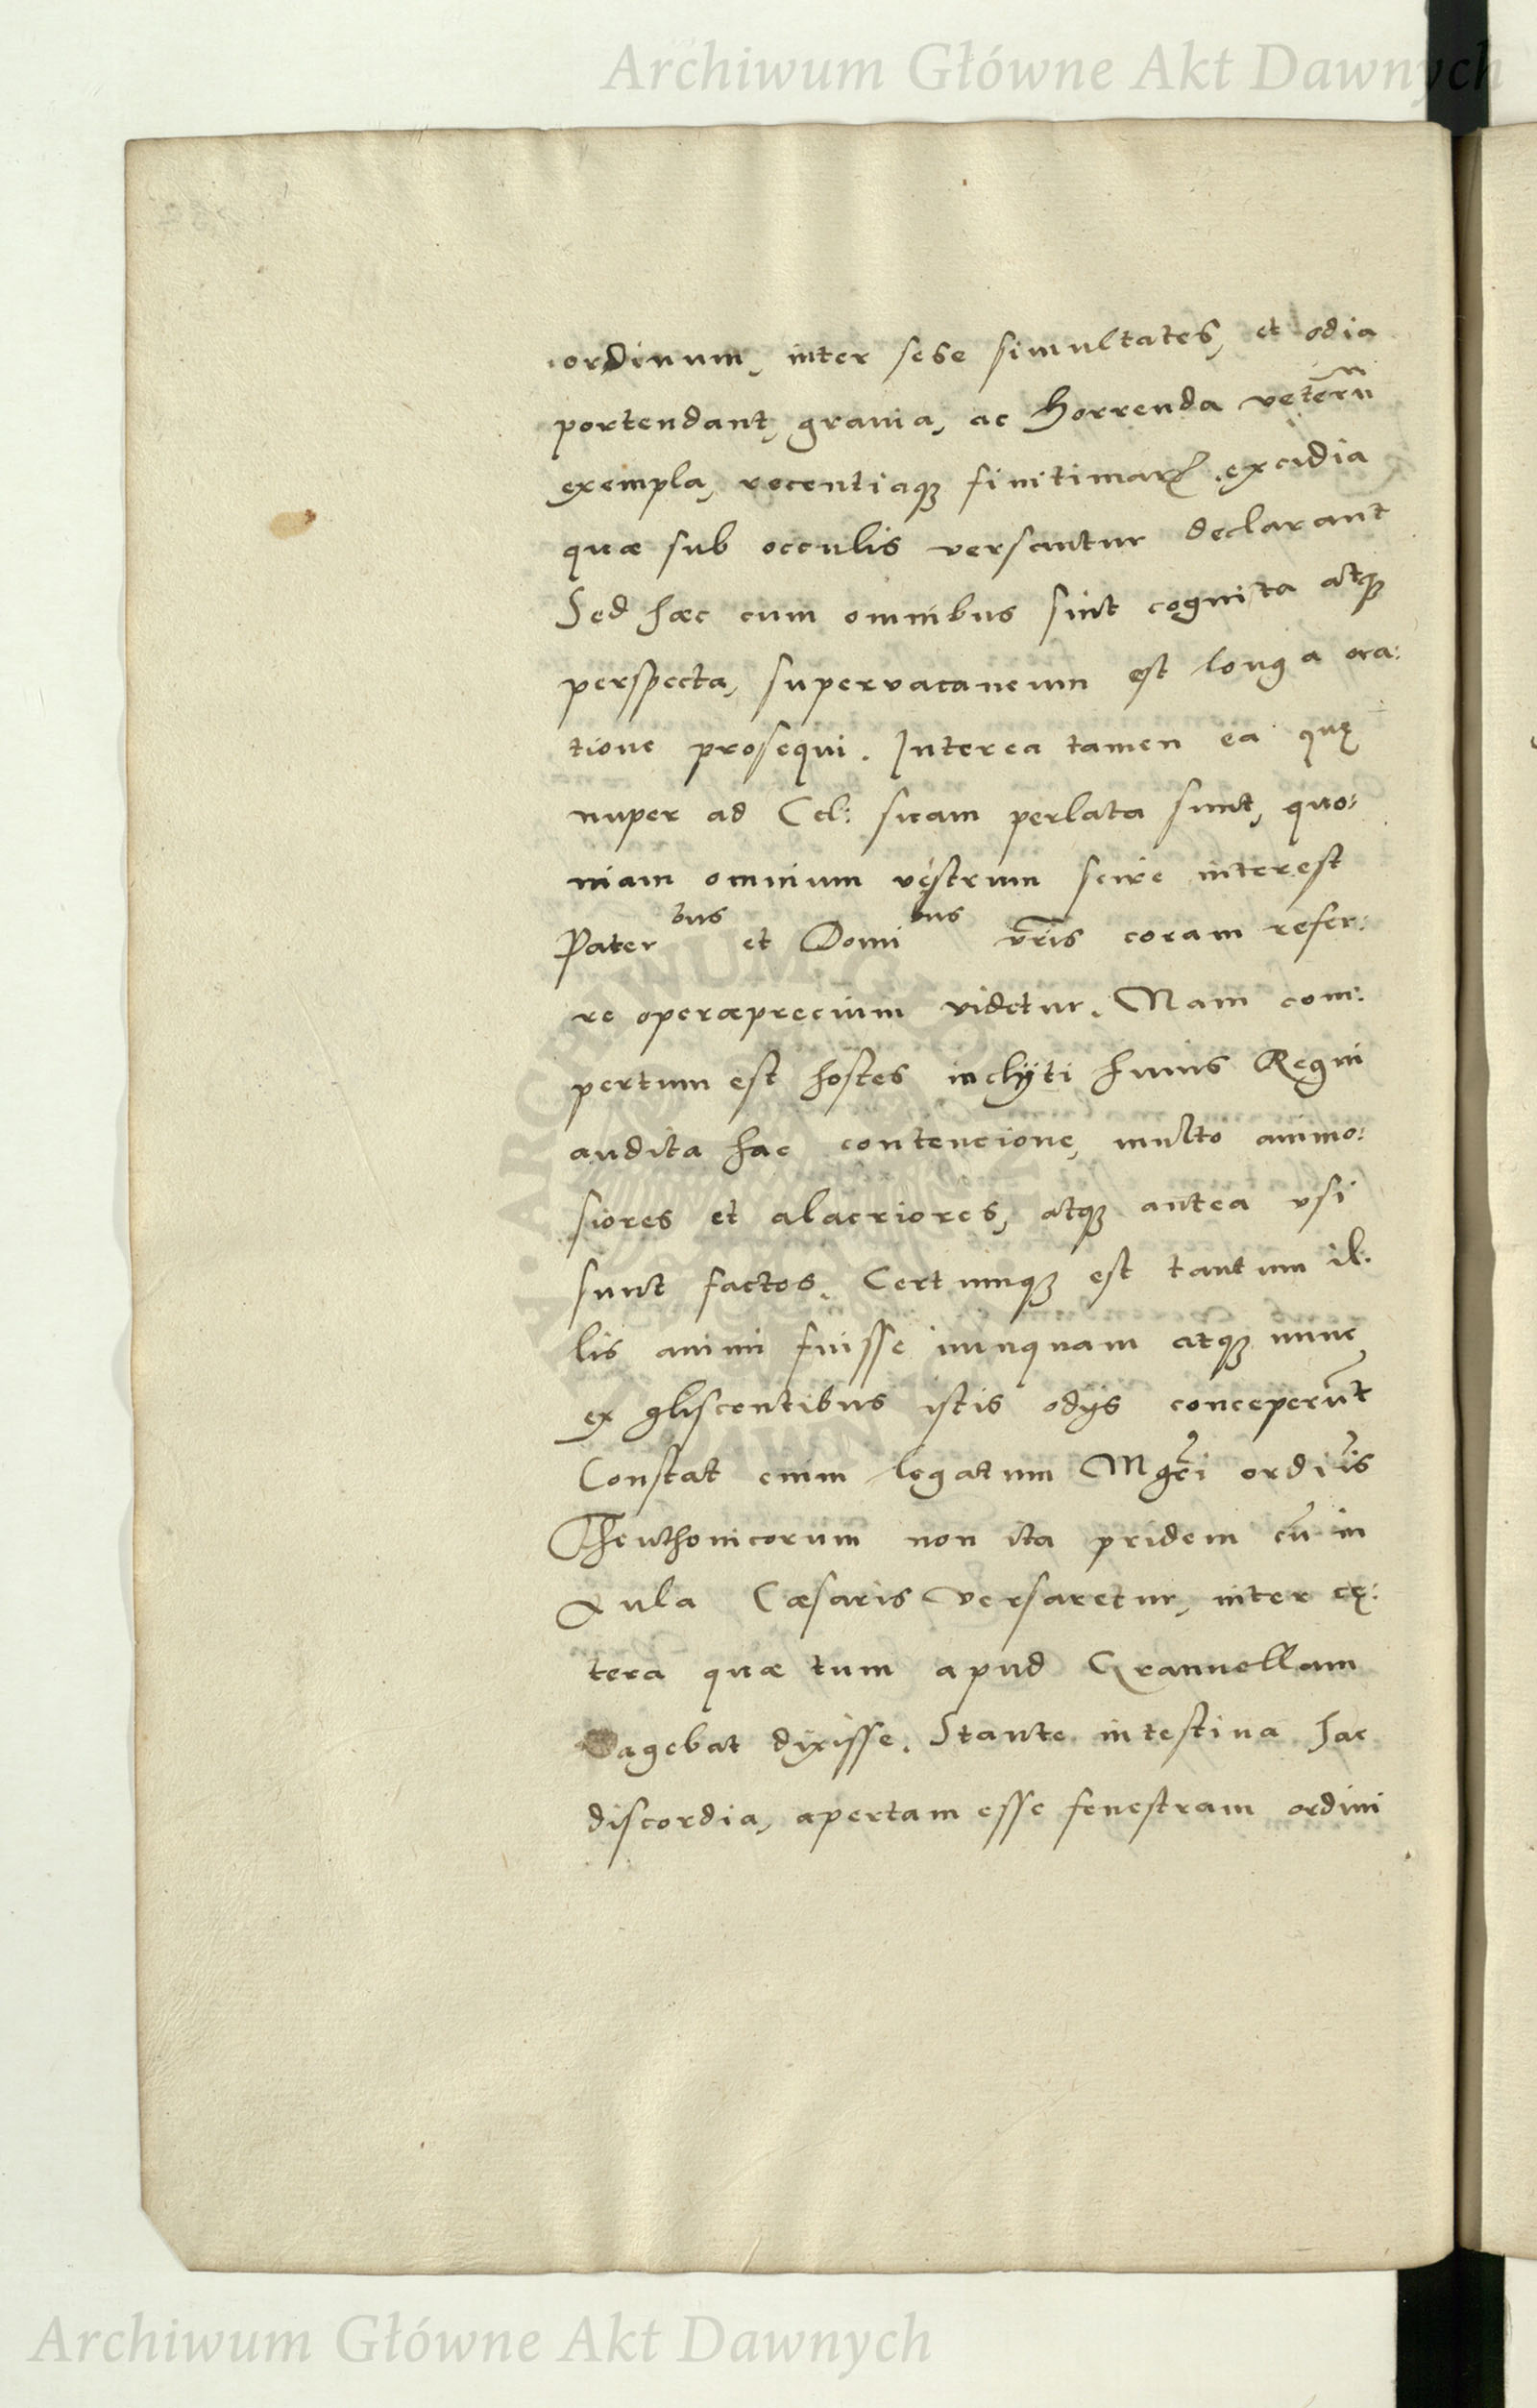 Archiwum Główne Akt Dawnych
ordinum, inter sese simultates, et odia
portendant, grauia, ac horrenda veterũ
exempla, recentiaqꝫ finitimarꝝ excidia
quæ sub occulis versantur declarant
Sed hæc cum omnibus sint cognista atqꝫ
perspecta, supervacaneum est longa ora:
tione prosequi. Interea tamen ea quę
nuper ad Cel: suam perlata sunt, quo:
niam omnium vestrum scire interest
Pater bus et Domi bus vr̃is coram refer:
re operæprecium videtur. Nam com:
pertum est hostes inclÿti huius Regni
audita hac contencione, multo animo:
siores et alacriores, atqꝫ antea vsi
sunt factos. Certumqꝫ est tantum il:
lis animi fuisse nunquam atqꝫ nunc
ex gliscentibus istis odijs conceperũt
Constat enim legatum Mgr̃i ordinis
Theuthonicorum non ita pridem cũ in
Aula Cæsaris versaretur, inter cę:
tera quæ tum apud Granuellam
agebat dixisse. Stante intestina hac
discordia, apertam esse fenestram ordini
Archiwum Główne Akt Dawnych